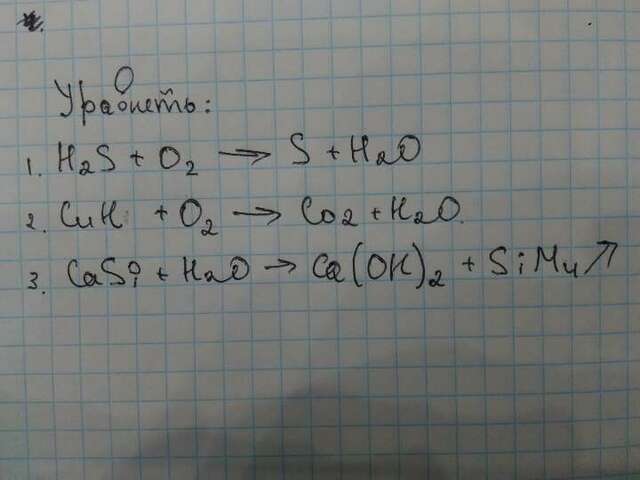 О
Уравнять:
1. H2S + O2 → S + H2O
2. CuH + O2 → Co2 + H2O.
3. CaSi + H2O → Ca(OH)2 + SiH4↗